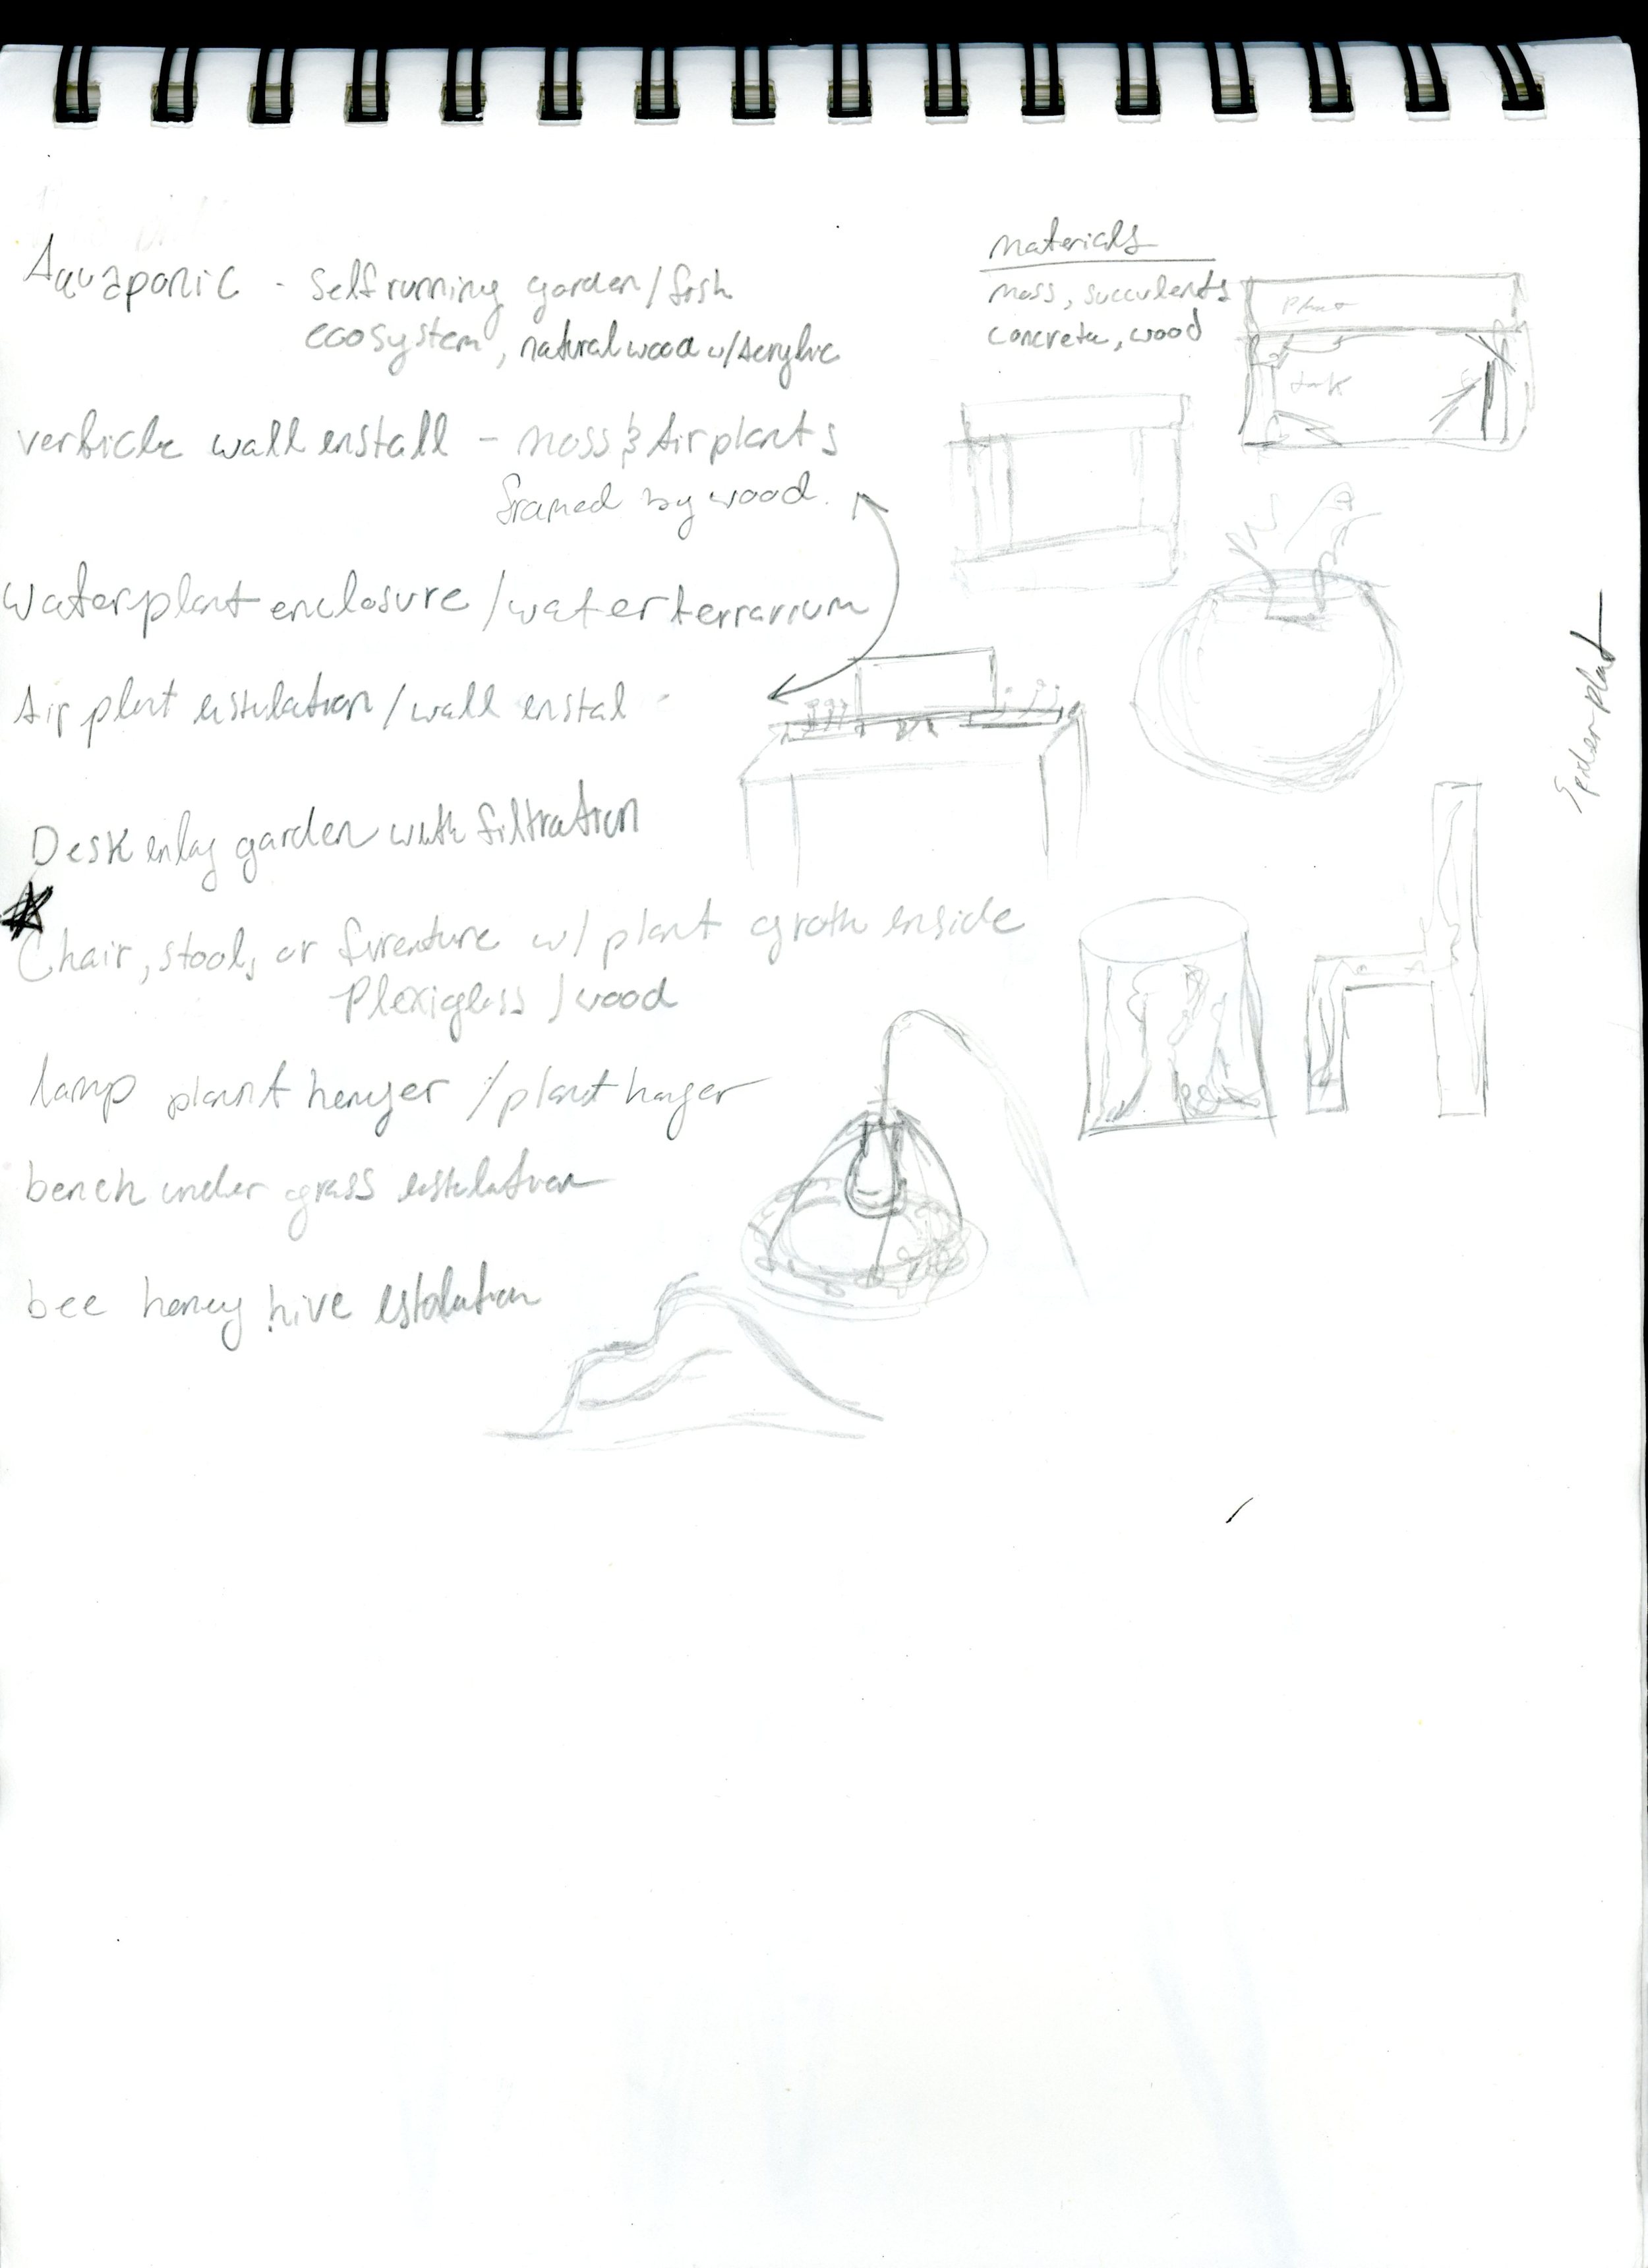 Aquaponic - Selfrunning garden/fish
ecosystem, natural wood w/Acrylic
verticle wall enstall - moss & Air plants
framed by wood.
Waterplant enclosure / water terrarium
Air plant enstulation / wall enstal
Desk enlay garden with filtration
Chair, stool, or furenture w/ plant groth enside
Plexiglass / wood
lamp plant henger / plant hanger
bench under grass enstulation
bee honey hive estolation
materials
moss, succulents
concrete, wood
Plant
tank
Spider plant